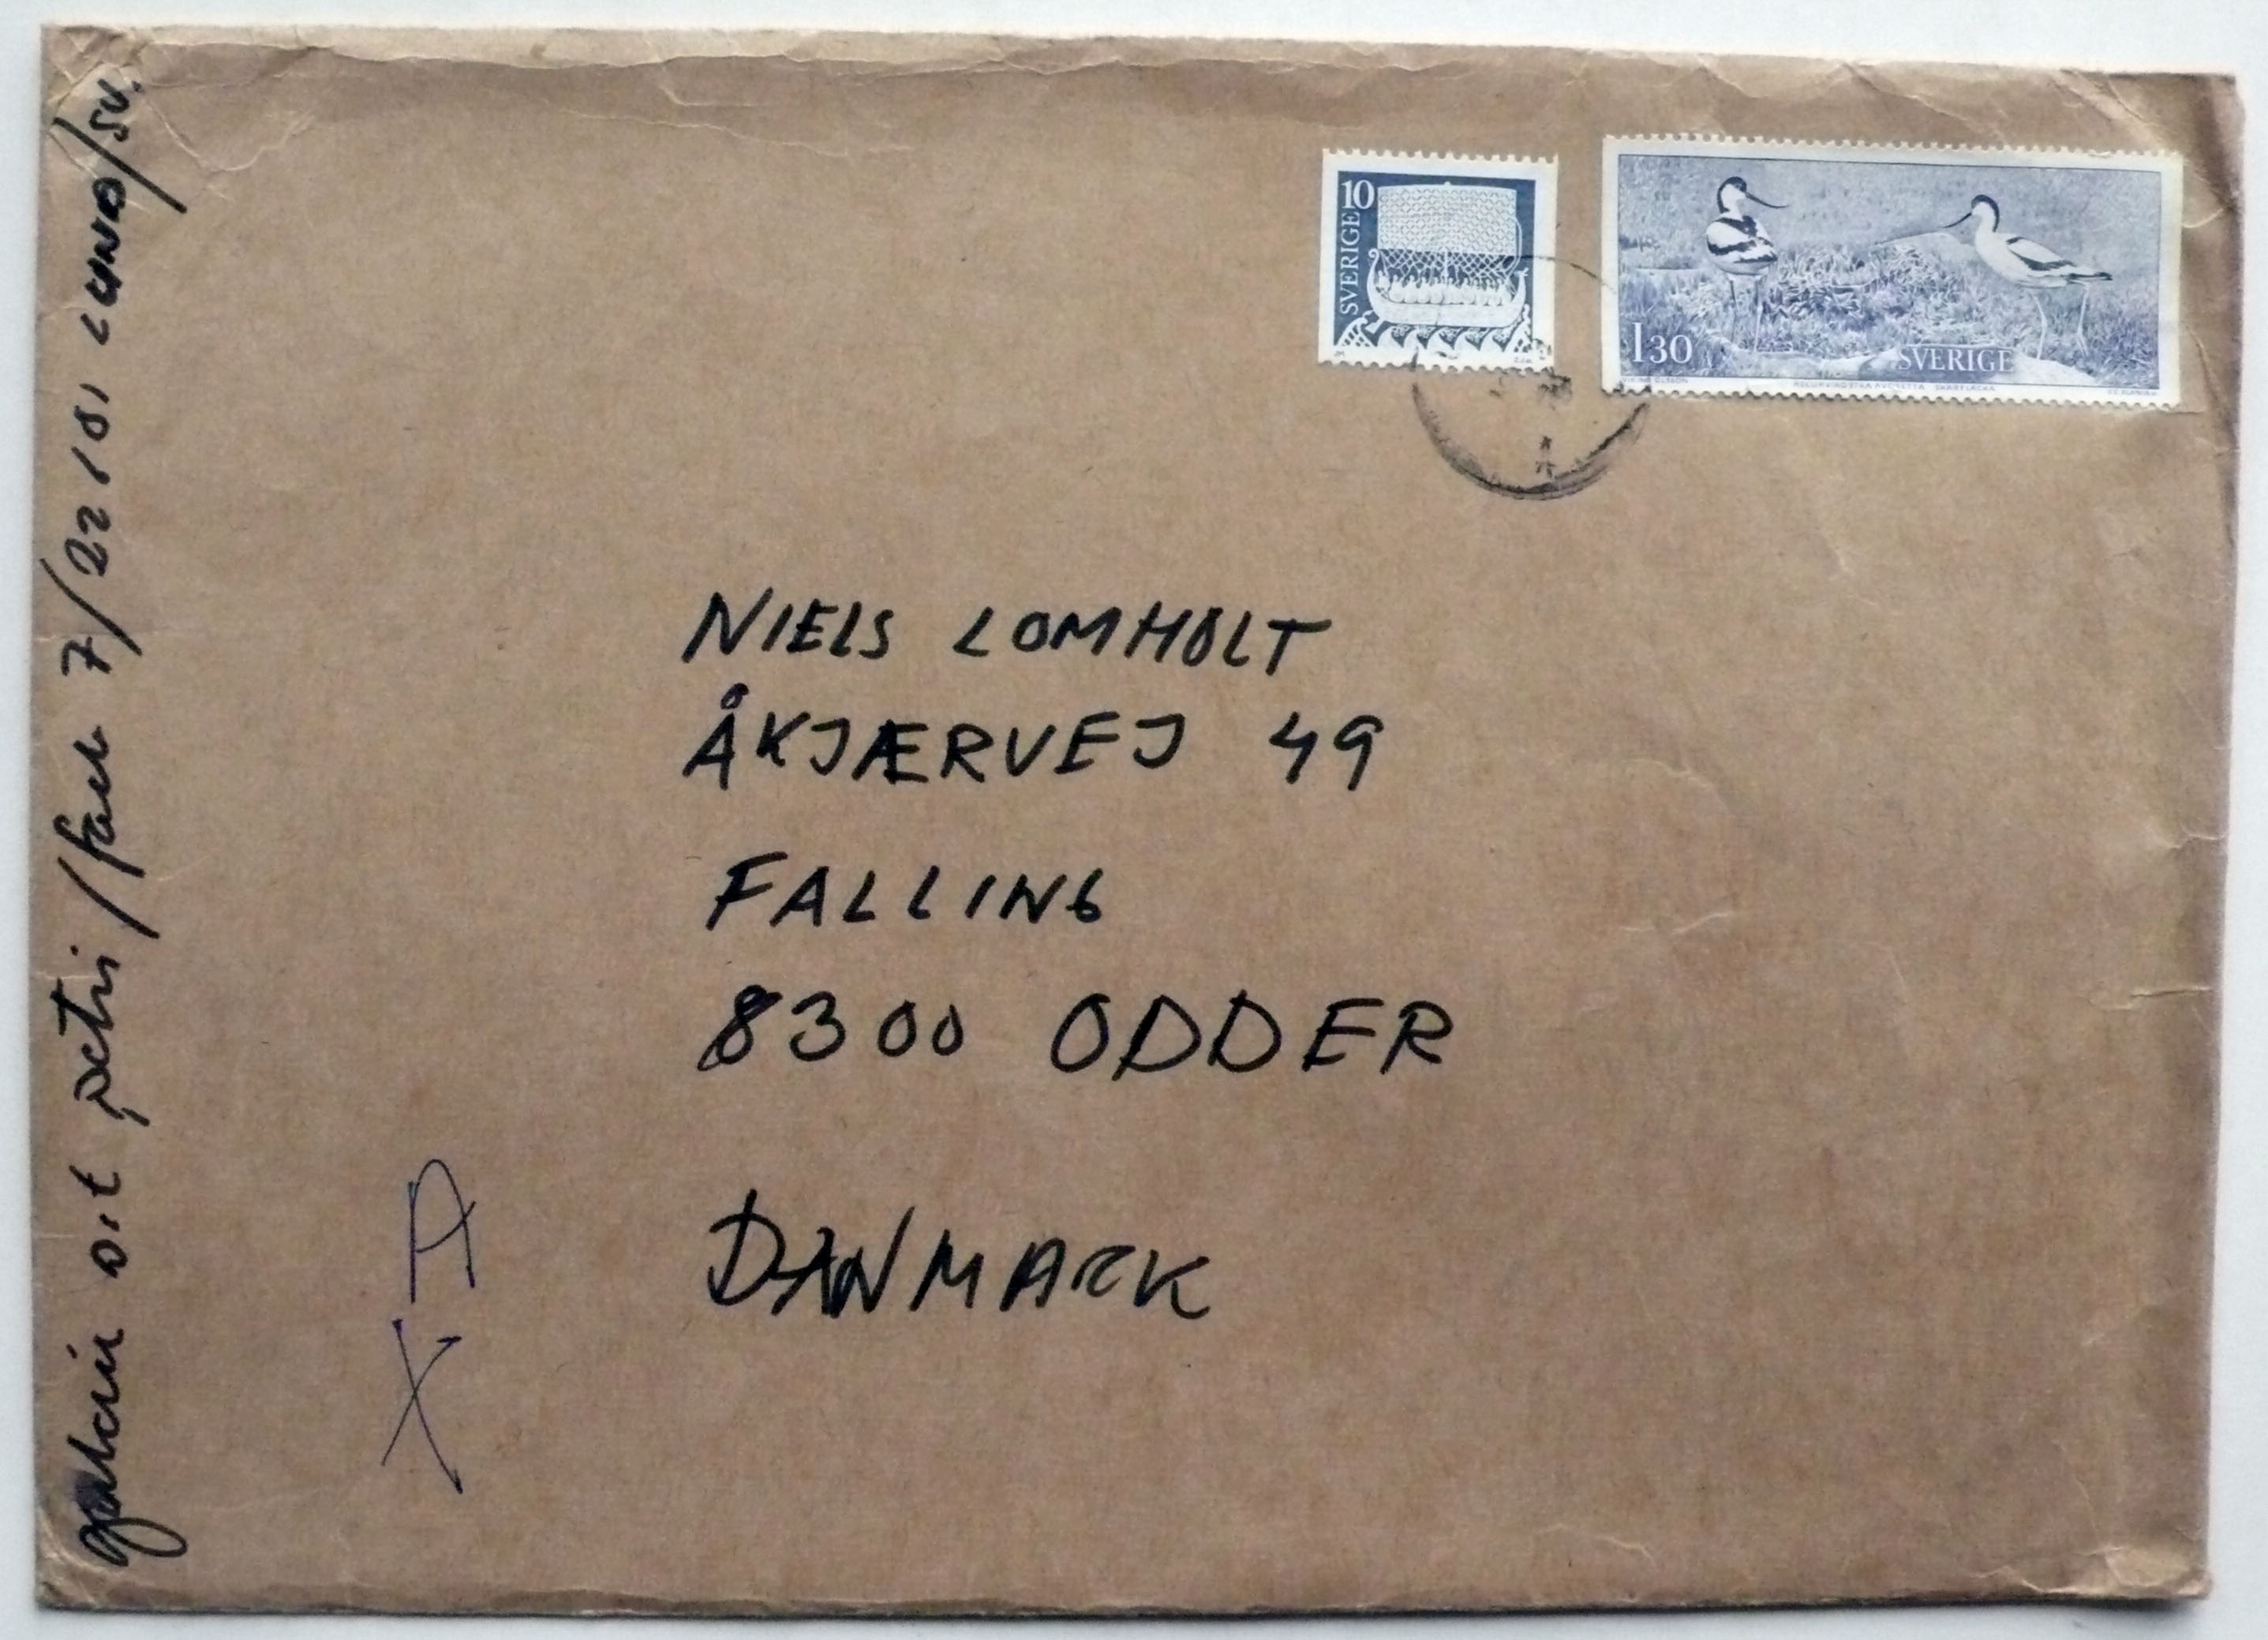 galerie s:t petri/fack 7/22101 LUND/SV.
10
SVERIGE
1 30
SVERIGE
RECURVIROSTRA AVOSETTA SKÄRFLÄCKA
NIELS LOMHOLT
ÅKJÆRVEJ 49
FALLING
8300 ODDER
DANMARK
A
X